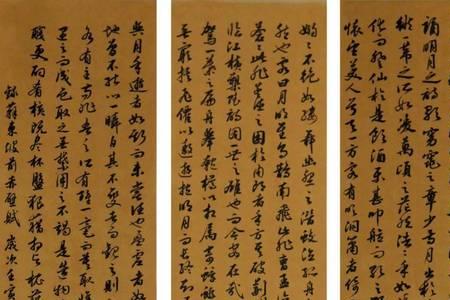 誦明月之詩歌窈窕之章少焉月出
縱一葦之所如凌萬頃之茫然浩浩乎如
化而登仙於是飲酒樂甚扣舷而歌之
懷望美人兮天一方客有吹洞簫者倚
嫋嫋不絕如縷舞幽壑之潛蛟泣孤舟
然也客曰月明星稀烏鵲南飛此非孟
蒼此非孟德之困於周郎者乎方其破荊
臨江橫槊賦詩固一世之雄也而今安在哉
駕一葉之扁舟舉匏樽以相屬寄蜉蝣
無窮挾飛仙以遨遊抱明月而長終知
與月乎逝者如斯而未嘗往也盈虛者如
地曾不能以一瞬自其不變者而觀之則
各有主苟非吾之所有雖一毫而莫取
之而成色取之無禁用之不竭是造物
盞更酌肴核既盡杯盤狼藉相與枕藉
錄蘇東坡前赤壁賦 歲次壬寅